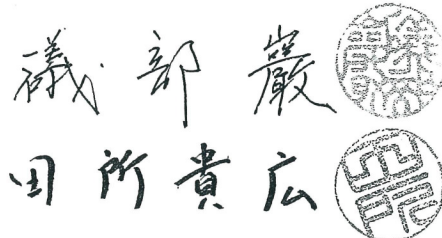 礒部巖
田所貴広